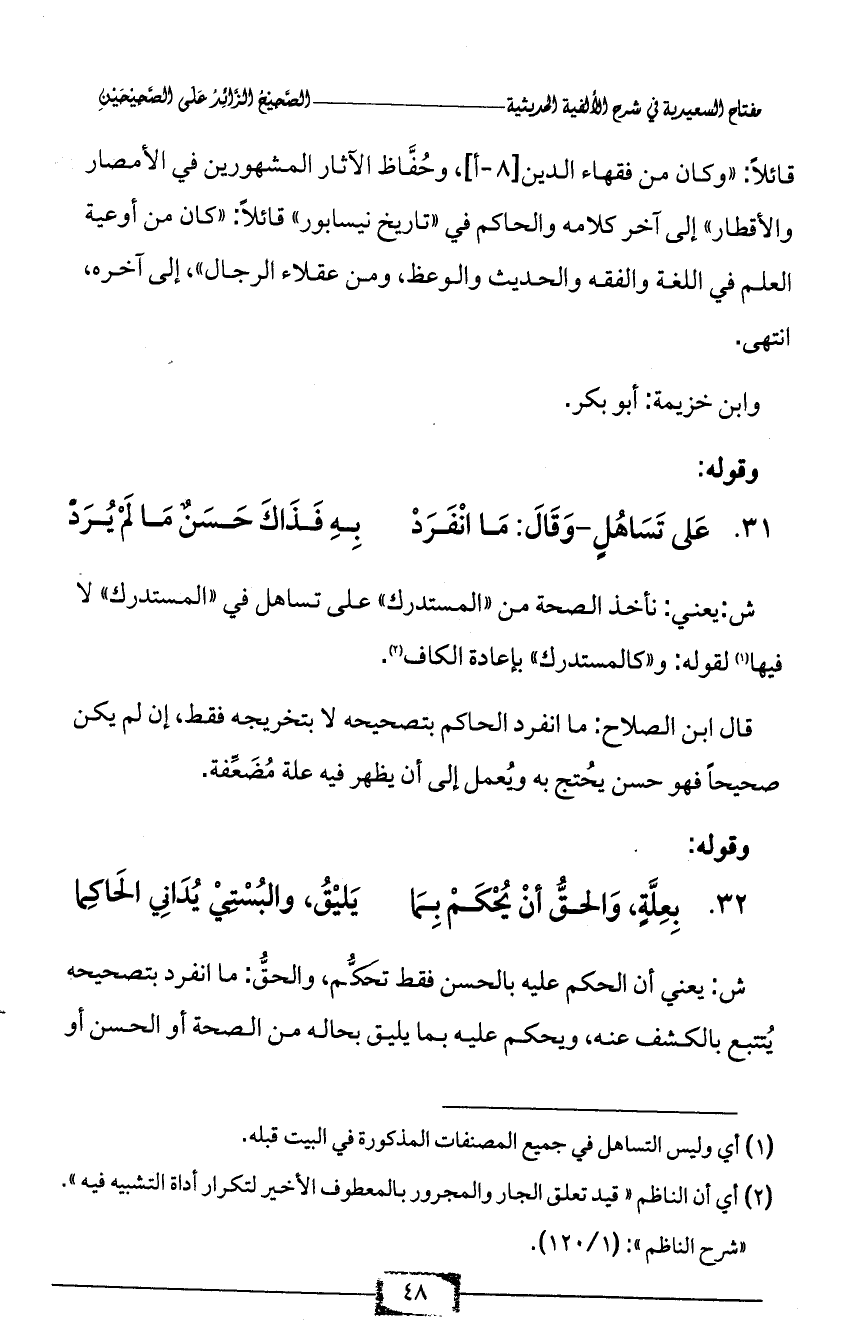 مفتاح السعيدية في شرح الألفية الحديثية ــــــــــــــ الصَّحِيحُ الزَّائِدُ عَلَى الصَّحِيحَيْنِ
قائلاً: «وكان من فقهاء الدين[٨-أ]، وحُفَّاظ الآثار المشهورين في الأمصار
والأقطار» إلى آخر كلامه والحاكم في «تاريخ نيسابور» قائلاً: «كان من أوعية
العلم في اللغة والفقه والحديث والوعظ، ومن عقلاء الرجال»، إلى آخره،
انتهى.
وابن خزيمة: أبو بكر.
وقوله:
٣١. عَلى تَسَاهُلٍ-وَقَالَ: مَا انْفَرَدْ بِهِ فَذَاكَ حَسَنٌ مَا لَمْ يُرَدْ
ش:يعني: نأخذ الصحة من «المستدرك» على تساهل في «المستدرك» لا
فيها(١) لقوله: و«كالمستدرك» بإعادة الكاف(٢).
قال ابن الصلاح: ما انفرد الحاكم بتصحيحه لا بتخريجه فقط، إن لم يكن
صحيحاً فهو حسن يحُتج به ويُعمل إلى أن يظهر فيه علة مُضَعِّفة.
وقوله:
٣٢. بِعِلَّةٍ، وَالحقُّ أنْ يُحْكَمْ بِمَا يَليْقُ، والبُسْتِيْ يُدَانِي الحَاكِما
ش: يعني أن الحكم عليه بالحسن فقط تحكُّم، والحقُّ: ما انفرد بتصحيحه
يُتتبع بالكشف عنه، ويحكم عليه بما يليق بحاله من الصحة أو الحسن أو
(١) أي وليس التساهل في جميع المصنفات المذكورة في البيت قبله.
(٢) أي أن الناظم « قيد تعلق الجار والمجرور بالمعطوف الأخير لتكرار أداة التشبيه فيه ».
«شرح الناظم »: (١/ ١٢٠).
٤٨